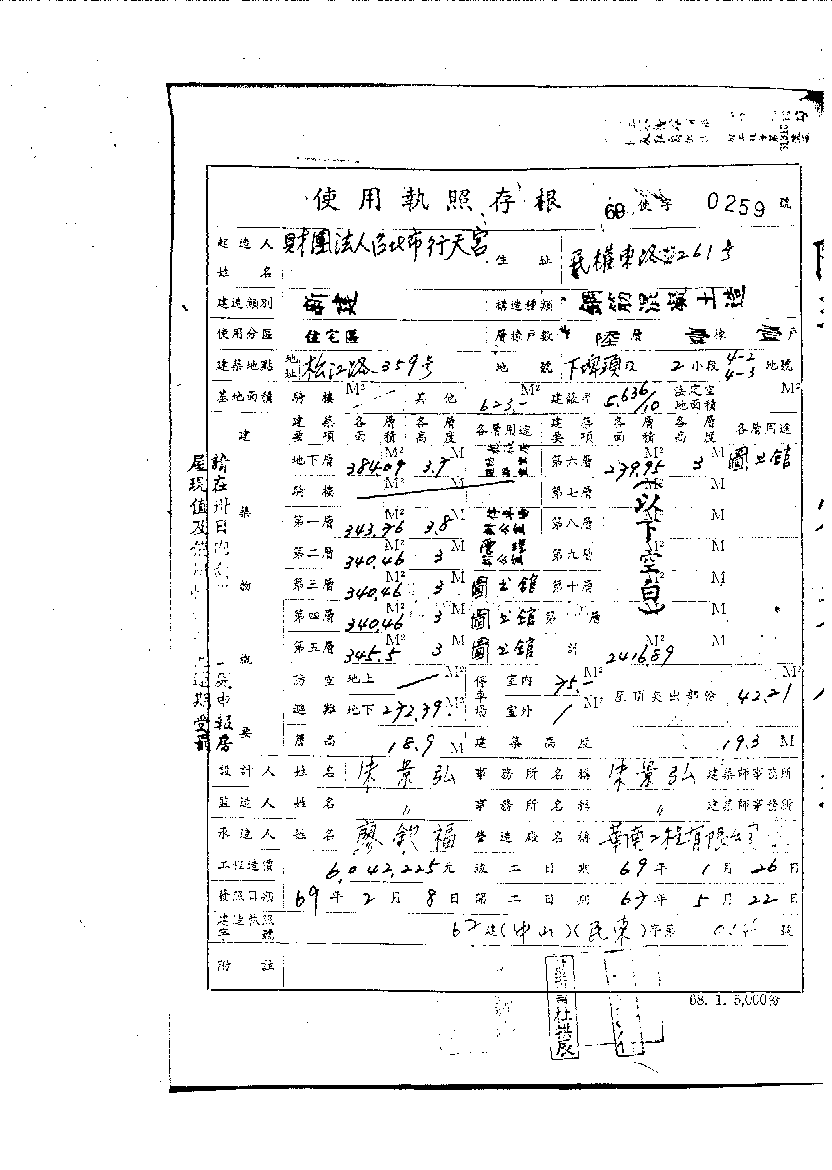 使用執照存根 使字 0259 號
起造人姓名 財團法人台北市行天宮 住址 民權東路 261号
建造類別 新建 構造種類 鋼筋混凝土造
使用分區 住宅區 層棟戶數 陸層 壹棟 壹戶
建築地點 地址 松江路 359号 地號 下埤頭段 2小段 4-2 4-3 地號
基地面積 騎樓 M² 其他 623.- M² 建蔽率 5.636/10 法定空地面積 M²
建築物概要 建築要項 各層面積 各層高度 各層用途 建築要項 各層面積 各層高度 各層用途
地下層 384.09 M² 3.7 M 第六層 279.95 M² 3 M 圖书館
騎樓 M² M 第七層 M² M
第一層 343.76 M² 3.8 M 第八層 M² M
第二層 340.46 M² 3 M 第九層 M² M
第三層 340.46 M² 3 M 圖书館 第十層 M² M
第四層 340.46 M² 3 M 圖书館 第 層 M² M
第五層 345.5 M² 3 M 圖书館 計 2416.89 M² M
(以下空白)
防空避難 地上 M² 停車場 室內 75.- M² 屋頂突出部份 42.21 M²
地下 272.39 M² 室外
層高 18.9 M 建築高度 19.3 M
設計人 姓名 陳景弘 事務所名稱 陳景弘 建築師事務所
監造人 姓名 〃 事務所名稱 〃 建築師事務所
承造人 姓名 廖欽福 營造廠名稱 華南工程有限公司
工程造價 6,042,225 元 竣工日期 69 年 1 月 26 日
發照日期 69 年 2 月 8 日 開工日期 67 年 5 月 22 日
建造執照字號 67 建(中山)(民東)字第 號
附註
68. 1. 5,000份
請在卅日內
屋現值及
申報房
逾期受罰
杜拱辰